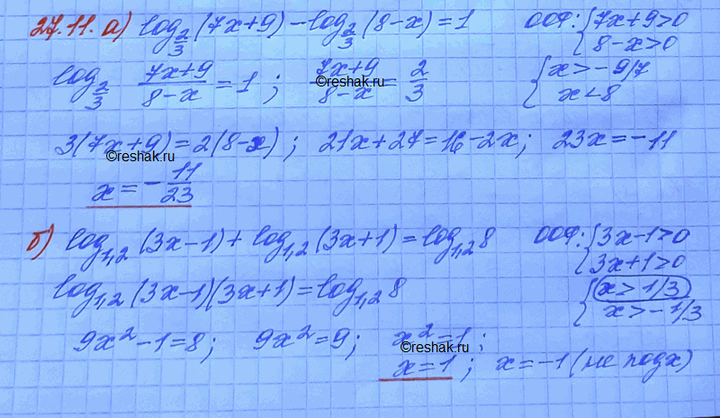 27.11. а) log_{2/3}(7x+9) - log_{2/3}(8-x) = 1   ООФ: {7x+9>0
8-x>0
log_{2/3} (7x+9)/(8-x) = 1 ; (7x+9)/(8-x) = 2/3   {x>-9/7
x<8
©reshak.ru
3(7x+9) = 2(8-x) ; 21x+27=16-2x; 23x=-11
©reshak.ru
x = -11/23
б) log_{1,2}(3x-1) + log_{1,2}(3x+1) = log_{1,2} 8   ООФ: {3x-1>0
3x+1>0
log_{1,2}(3x-1)(3x+1) = log_{1,2} 8   {x>1/3
x>-1/3
9x²-1=8; 9x²=9; x²=1;
©reshak.ru
x=1 ; x=-1 (не подх)